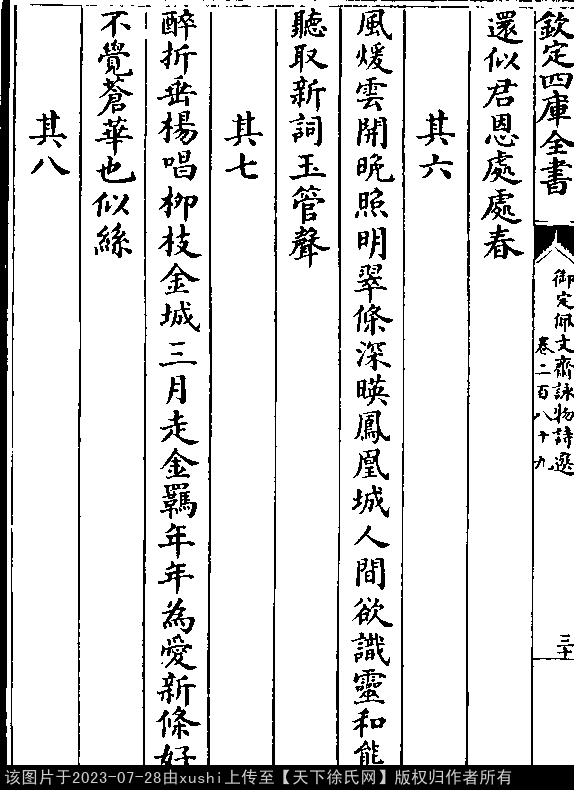 欽定四庫全書
御定佩文齋詠物詩選
卷二百八十九
三十
還似君恩處處春
其六
風煖雲開晚照明翠條深暎鳳凰城人間欲識靈和態
聽取新詞玉管聲
其七
醉折垂楊唱柳枝金城三月走金羈年年為愛新條好
不覺蒼華也似絲
其八
该图片于2023-07-28由xushi上传至【天下徐氏网】版权归作者所有